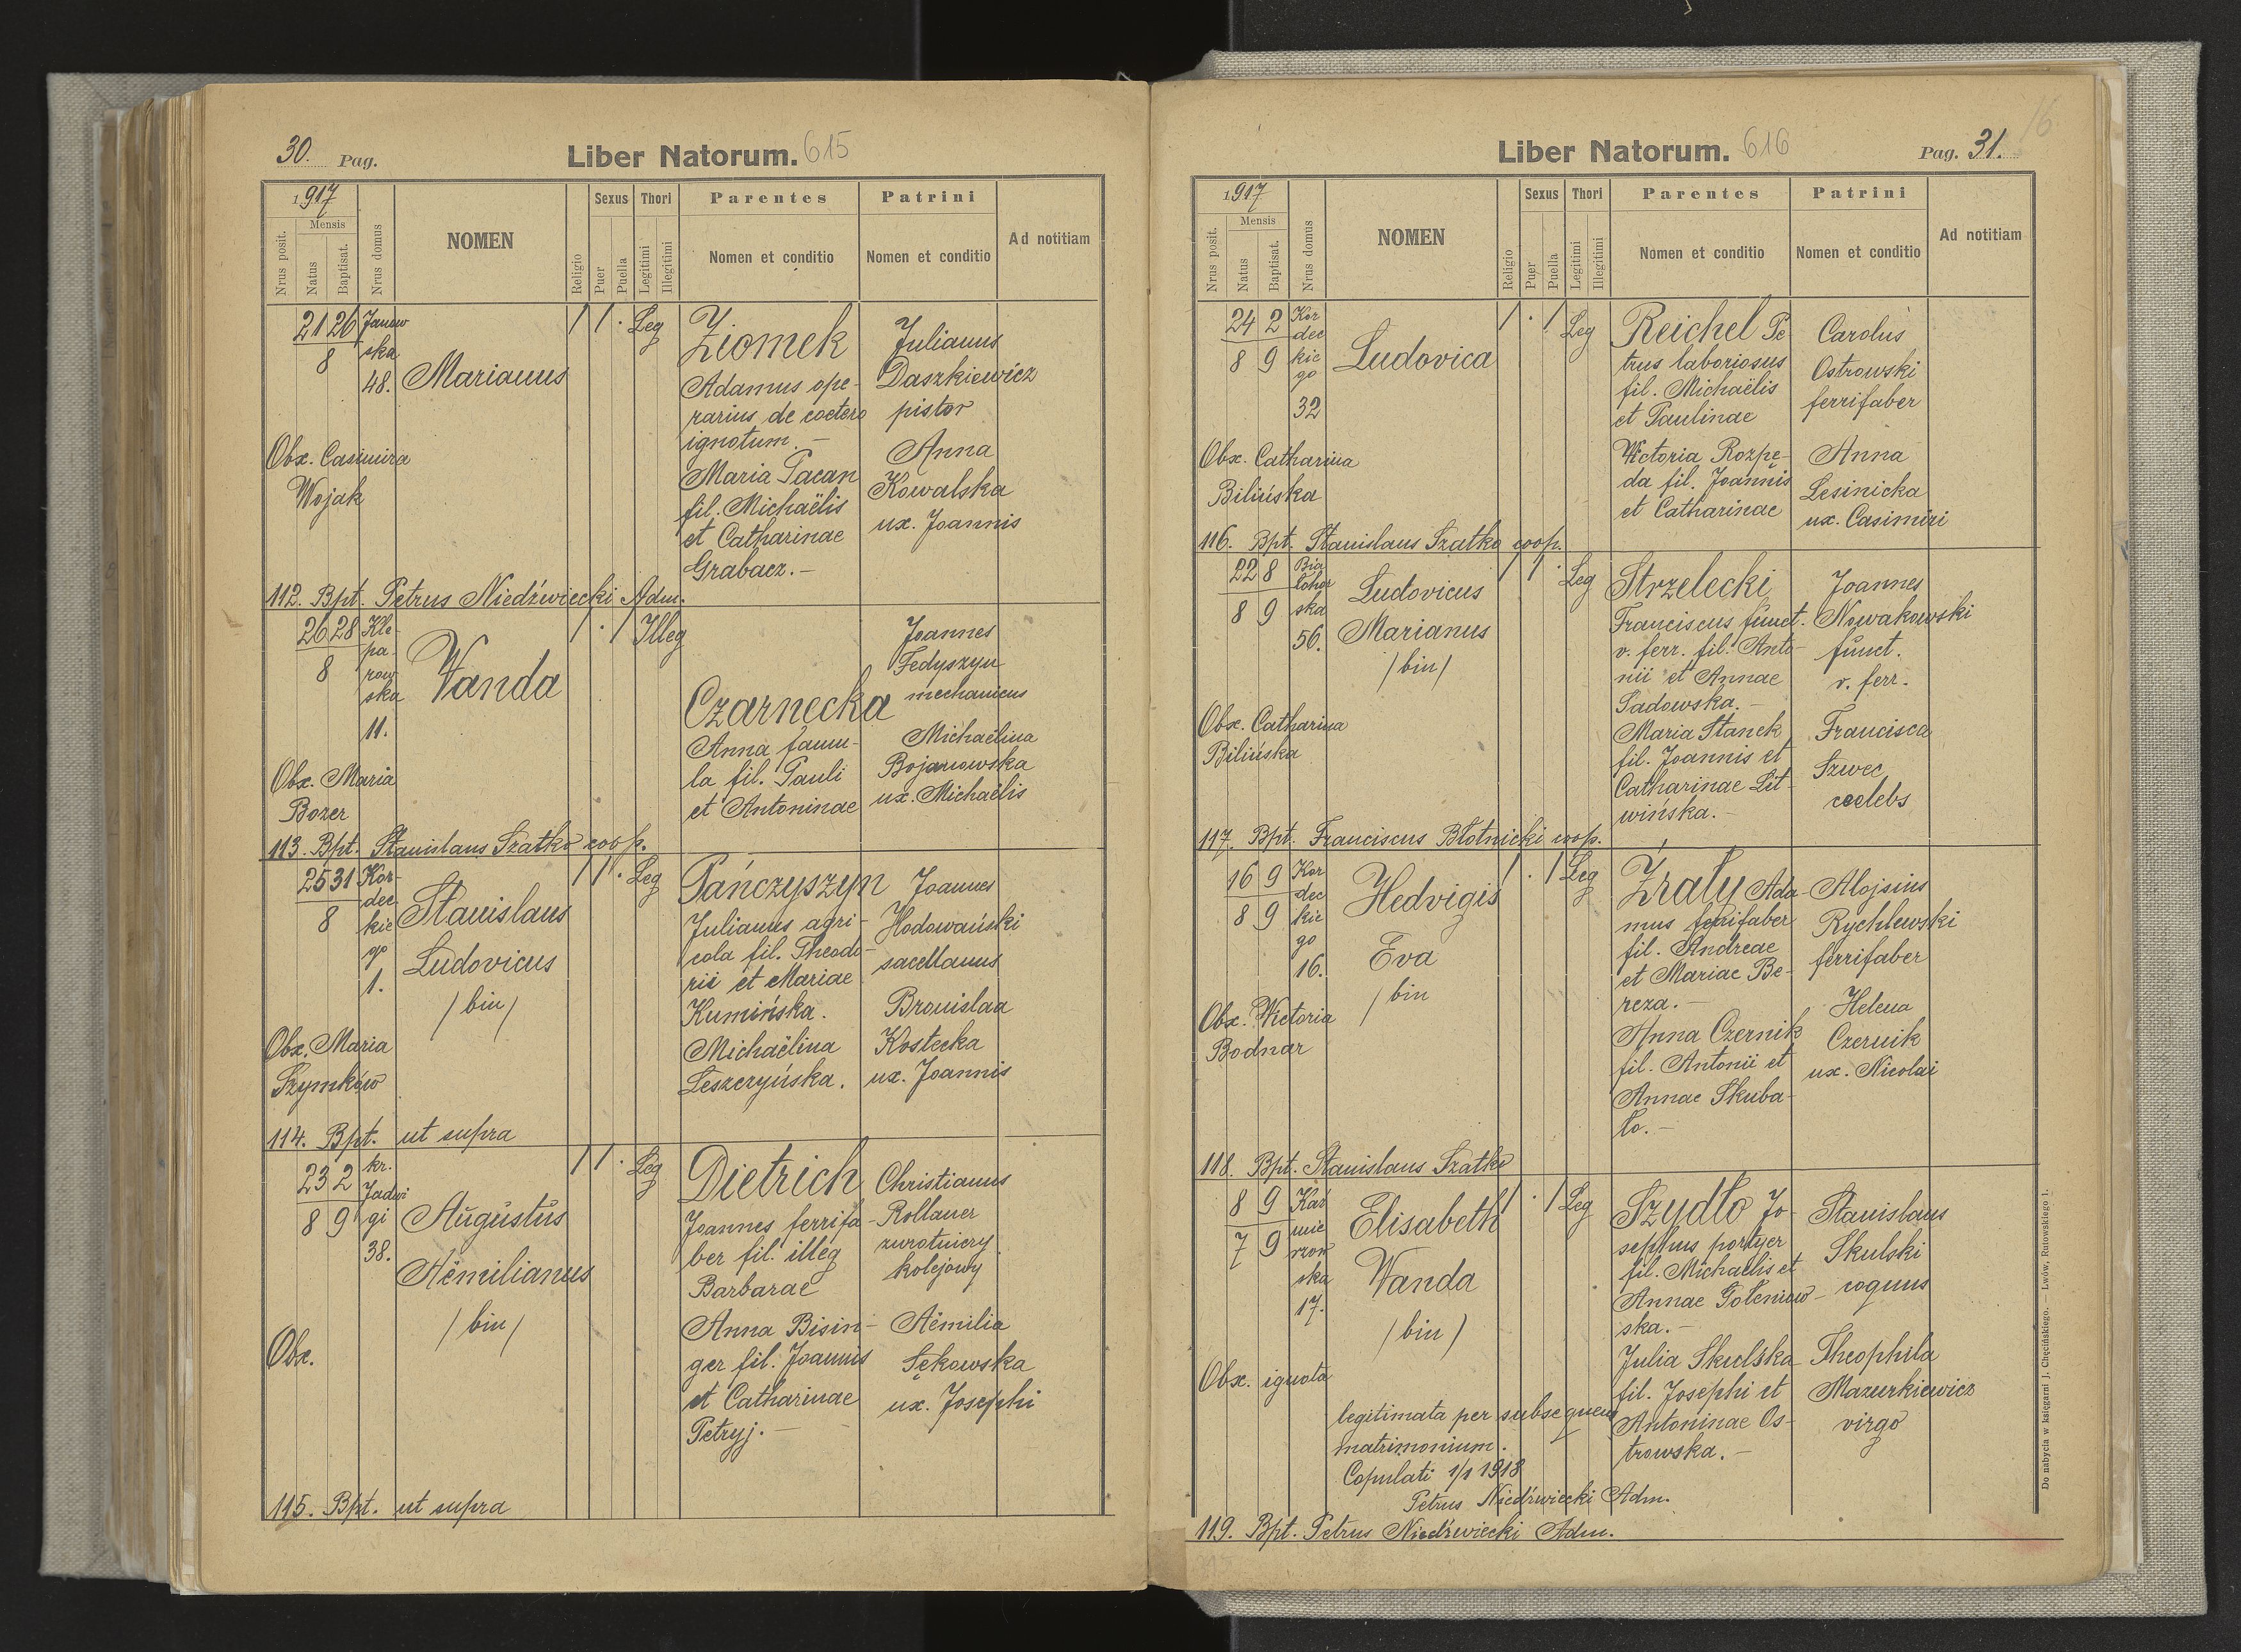 30. Pag.
Liber Natorum. 615
1917
Mensis
Nrus posit.
Natus
Baptisat.
Nrus domus
NOMEN
Religio
Sexus
Puer
Puella
Thori
Legitimi
Illegitimi
Parentes
Nomen et conditio
Patrini
Nomen et conditio
Ad notitiam
21 26
8
Janow
ska
48.
Marianus
1 1 . Leg
Ziomek
Adamus ope-
rarius de coetero
ignotum. -
Maria Pacan
fil. Michaëlis
et Catharinae
Grabacz. -
Julianus
Daszkiewicz
pistor
Anna
Kowalska
ux. Joannis
Obx. Casimira
Wojak
112. Bpt. Petrus Niedźwiecki Adm.
26 28
8
Kle-
pa-
row
ska
11.
Wanda
1 . 1 Illeg
Czarnecka
Anna famu-
la fil. Pauli
et Antoninae
Joannes
Fedyszyn
mechanicus
Michaëlina
Bojanowska
ux. Michaëlis
Obx. Maria
Bozer
113. Bpt. Stanislaus Szatko coop.
25 31
8
Kor-
dec
kie
go
1.
Stanislaus
Ludovicus
/ bin /
1 1 . Leg
Pańczyszyn
Julianus agri-
cola fil. Theodo-
rii et Mariae
Kumińska.
Michaëlina
Leszczyńska.
Joannes
Hodowański
sacellanus
Bronislaa
Kostecka
ux. Joannis
Obx. Maria
Szymków
114. Bpt. ut supra
23 2
8 9
kr.
Jadwi
gi
38.
Augustus
Aëmilianus
/ bin /
1 1 . Leg
Dietrich
Joannes ferrifa-
ber fil. illeg
Barbarae
Anna Bisin-
ger fil. Joannis
et Catharinae
Petryj. -
Christianus
Rollauer
zwrotniczy
kolejowy
Aëmilia
Sękowska
ux. Josephi
Obx.
115. Bpt. ut supra
Liber Natorum. 616
Pag. 31.
16
1917
Mensis
Nrus posit.
Natus
Baptisat.
Nrus domus
NOMEN
Religio
Sexus
Puer
Puella
Thori
Legitimi
Illegitimi
Parentes
Nomen et conditio
Patrini
Nomen et conditio
Ad notitiam
24 2
8 9
Kor
dec
kie
go
32
Ludovica
1 . 1 Leg
Reichel Pe-
trus laboriosus
fil. Michaëlis
et Paulinae
Victoria Rozpę-
da fil. Joannis
et Catharinae
Carolus
Ostrowski
ferrifaber
Anna
Lesinicka
ux. Casimiri
Obx. Catharina
Bilińska
116. Bpt. Stanislaus Szatko coop.
22 8
8 9
Bia
łohor
ska
56.
Ludovicus
Marianus
/ bin /
1 1 . Leg
Strzelecki
Franciscus funct.
v. ferr. fil. Anto-
nii et Annae
Sadowska. -
Maria Stanek
fil. Joannis et
Catharinae Lit-
wińska. -
Joannes
Nowakowski
funct.
v. ferr.
Francisca
Szwec
coelebs
Obx. Catharina
Bilińska
117. Bpt. Franciscus Błotnicki coop.
16 9
8 9
Kor
dec
kie
go
16.
Hedvigis
Eva
/ bin
1 . 1 Leg
Źrały Ada-
mus ferrifaber
fil. Andreae
et Mariae Be-
reza. -
Anna Czernik
fil. Antonii et
Annae Skuba-
ło. -
Alojsius
Rychlewski
ferrifaber
Helena
Czernik
ux. Nicolai
Obx. Victoria
Bodnar
118. Bpt. Stanislaus Szatko
8 9
7 9
Kaź
mie
rzow
ska
17.
Elisabeth
Wanda
/ bin /
1 . 1 Leg
Szydło Jo-
sephus portyer
fil. Michaëlis et
Annae Gołeniow-
ska. -
Julia Skulska
fil. Josephi et
Antoninae Os-
trowska. -
Stanislaus
Skulski
coquus
Theophila
Mazurkiewicz
virgo
Obx. ignota
legitimata per subsequens
matrimonium.
Copulati 1/1 1918
Petrus Niedźwiecki Adm.
119. Bpt. Petrus Niedźwiecki Adm.
Do nabycia w księgarni J. Chęcińskiego. Lwów, Rutowskiego 1.